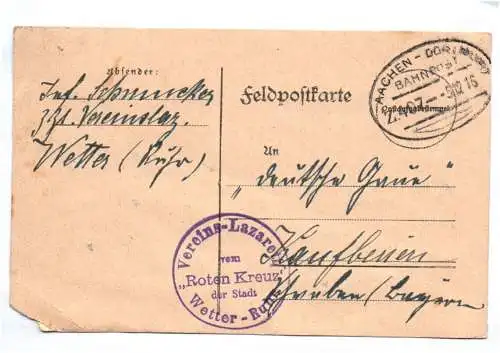 Absender:
Inf. Schumacher
z. Zt. Vereinslaz.
Wetter (Ruhr)
Feldpostkarte
AACHEN - DORTMUND
BAHNPOST
9 12 16
An
„Deutsche Gaue"
Kaufbeuren
Schwaben (Bayern)
Vereins-Lazarett
vom
„Roten Kreuz"
der Stadt
Wetter-Ruhr